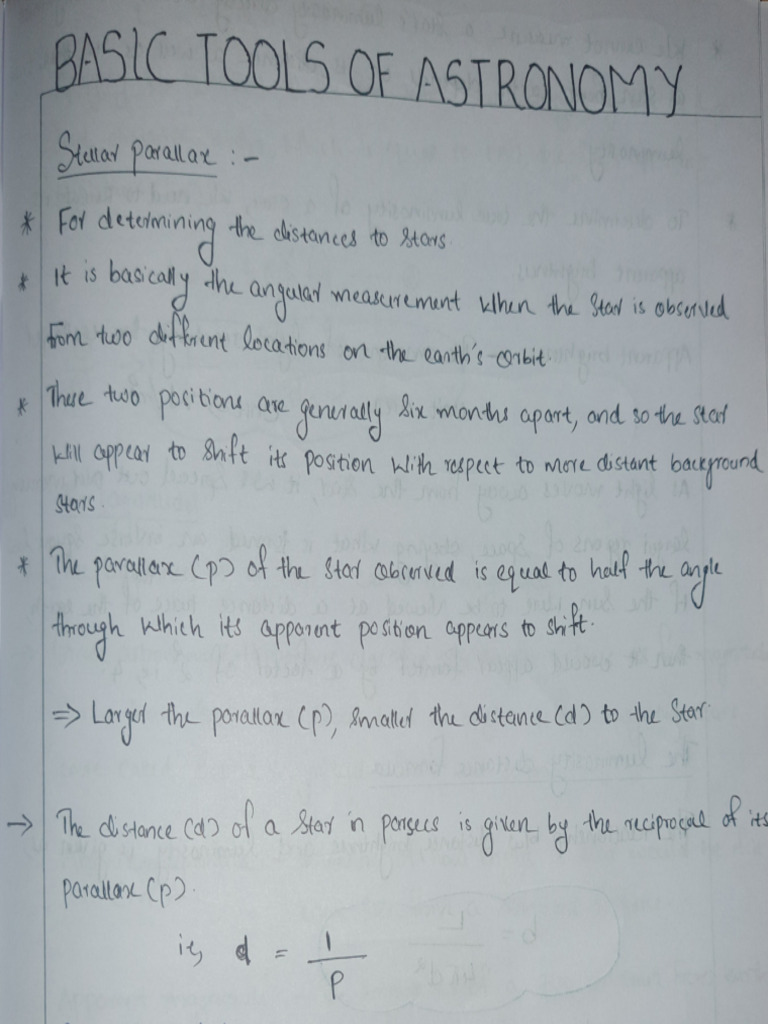 BASIC TOOLS OF ASTRONOMY
Stellar parallax :-
* For determining the distances to stars.
* It is basically the angular measurement when the star is observed
from two different locations on the earth's orbit.
* These two positions are generally six months apart, and so the star
will appear to shift its position with respect to more distant background
stars.
* The parallax (p) of the star observed is equal to half the angle
through which its apparent position appears to shift.
=> Larger the parallax (p), smaller the distance (d) to the star.
→ The distance (d) of a star in parsecs is given by the reciprocal of its
parallax (p).
ie, d = 1/p